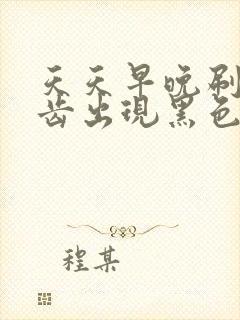 天天早晚刷
齿出现黑色
程某